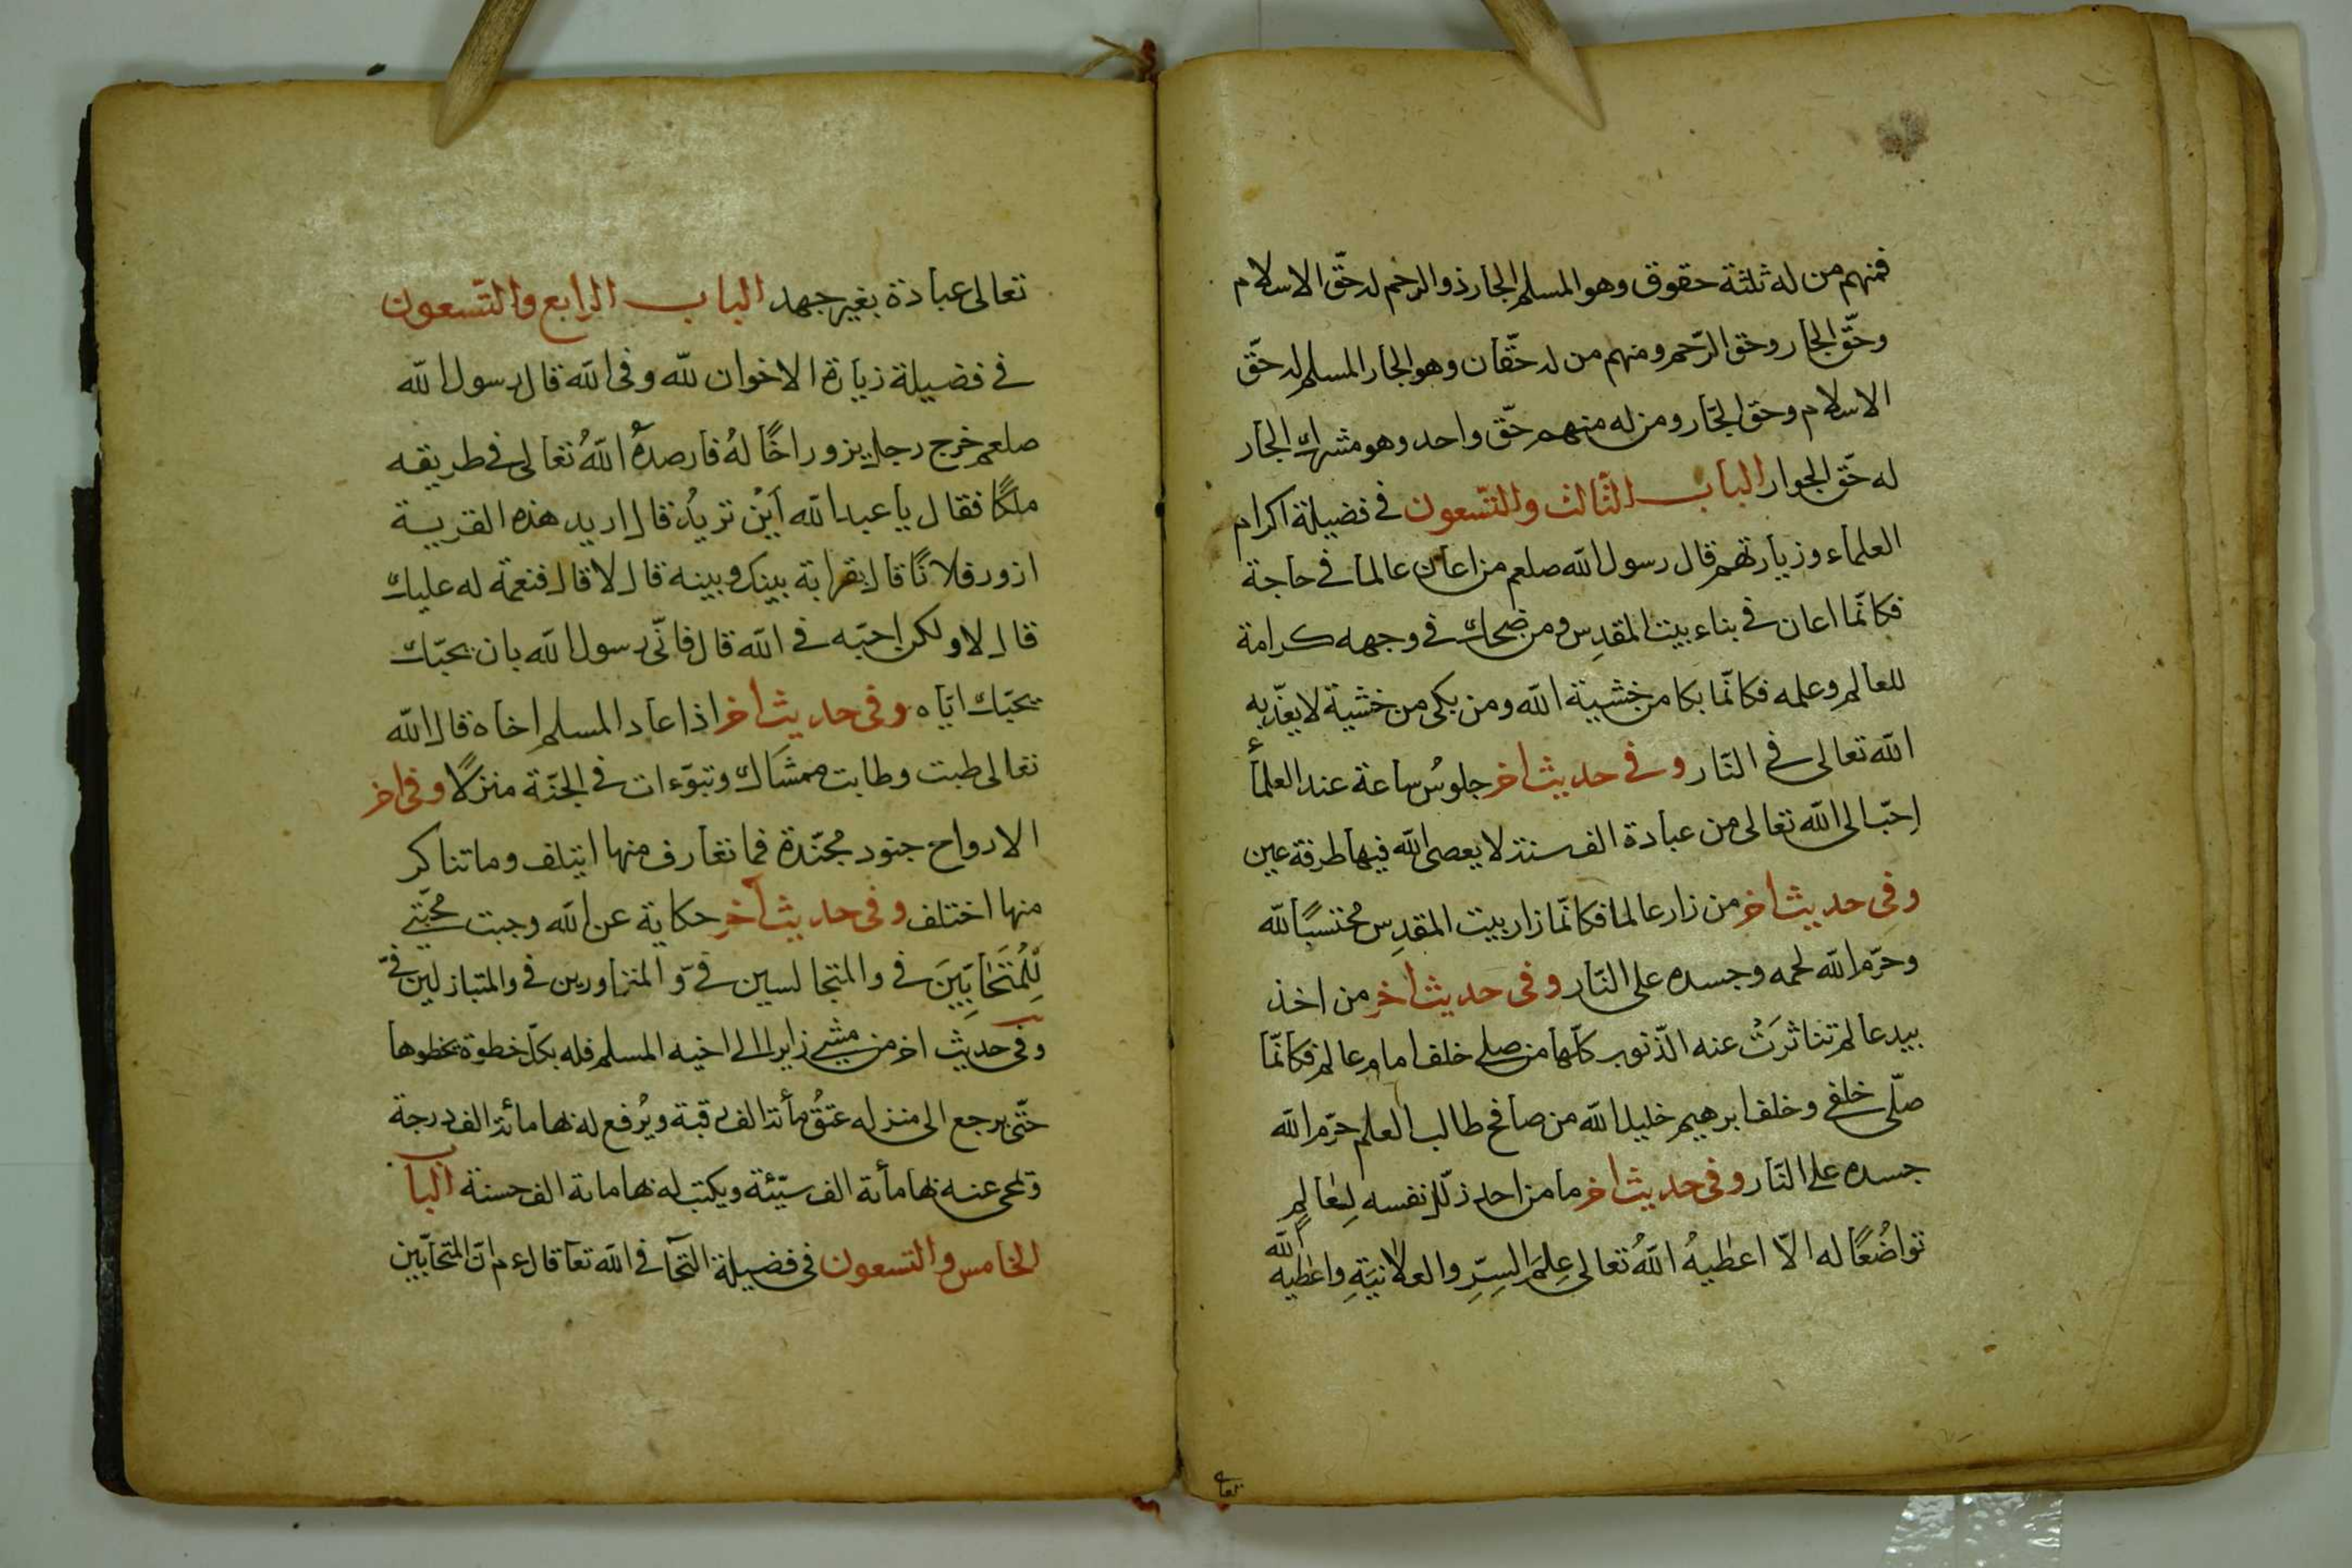 فمنهم من له ثلثة حقوق وهو المسلم الجار ذو الرحم له حقّ الاسلام
وحقّ الجار وحق الرّحم ومنهم من له حقّان وهو الجار المسلم له حقّ
الاسلام وحق الجّار ومن له منهم حقّ واحد وهو مشرك الجار
له حقّ الجوار الباب الثّالث والتّسعون فى فضيلة اكرام
العلماء وزيارتهم قال رسول الله صلعم من اعان عالما فى حاجة
فكانّما اعان فى بناء بيت المقدِس ومن ضحك فى وجهه كرامة
للعالم وعلمه فكانّما بكا من خشية الله ومن بكى من خشية لا يعذّبه
الله تعالى فى النّار وفى حديث اخر جلوسُ ساعة عند العلمأ
احّب الى الله تعالى من عبادة الف سنة لا يعصى الله فيها طرفة عين
وفى حديث اخر من زار عالما فكانّما زار بيت المقدِس مُحتسبًا لله
وحرّم الله لحمه وجسده على النّار وفى حديث اخر من اخذ
بيد عالم تناثرَتْ عنه الذّنوب كلّها من صلى خلف امام عالم فكانّما
صلّى خلفى وخلف ابرهيم خليل الله من صافح طالب العلم حرّم الله
جسده على النّار وفى حديث اخر ما من احد ذلّل نفسه لِعالِمٍ
تواضُعًا له الاّ اعطيهُ اللهُ تعالى عِلمَ السِرِّ والعلانيَةِ واعطيه الله
تعالى
تعالى عبادة بغير جهد الباب الرابع والتّسعون
فى فضيلة زيارة الاخوان لله وفى الله قال رسول الله
صلعم خرج رجل يزور اخًا لهُ فارصدهُ اللهُ تعالى فى طريقه
ملكًا فقال يا عبد الله اَيْن تريدُ قال اريد هذه القرية
ازور فلانًا قال بقرابة بينك وبينه قال لا قال فنعمة له عليك
قال لا ولكن احبّه فى الله قال فانّى رسول الله بان يحبّك
يحبّك ايّاه وفى حديث اخر اذا عاد المسلم اخاه قال الله
تعالى طبت وطابت ممشَاك وتبوّءات فى الجنّة منزلًا وفى اخر
الارواح جنود مُجنّدة فما تعارف منها ايتلف وما تناكر
منها اختلف وفى حديث آخر حكاية عن الله وجبت محبّتى
لِلْمُتَحَابّيِنَ فى والمتجالسين فىّ و المتزاورين فى والمتباذلين فىّ
وفى حديث اخر من مشى زايرا الى اخيه المسلم فله بكلّ خطوة يخطوها
حتّى يرجع الى منزله عتقُ مأئة الف رقبة ويُرفع له بها مائة الف درجة
وتمحى عنه بها مأئة الف سيّئة ويكتب له بها مائة الف حسنة الباب
الخامس والتسعون فى فضيلة التحآ فى الله تعآ قال ءم انّ المتحابّين